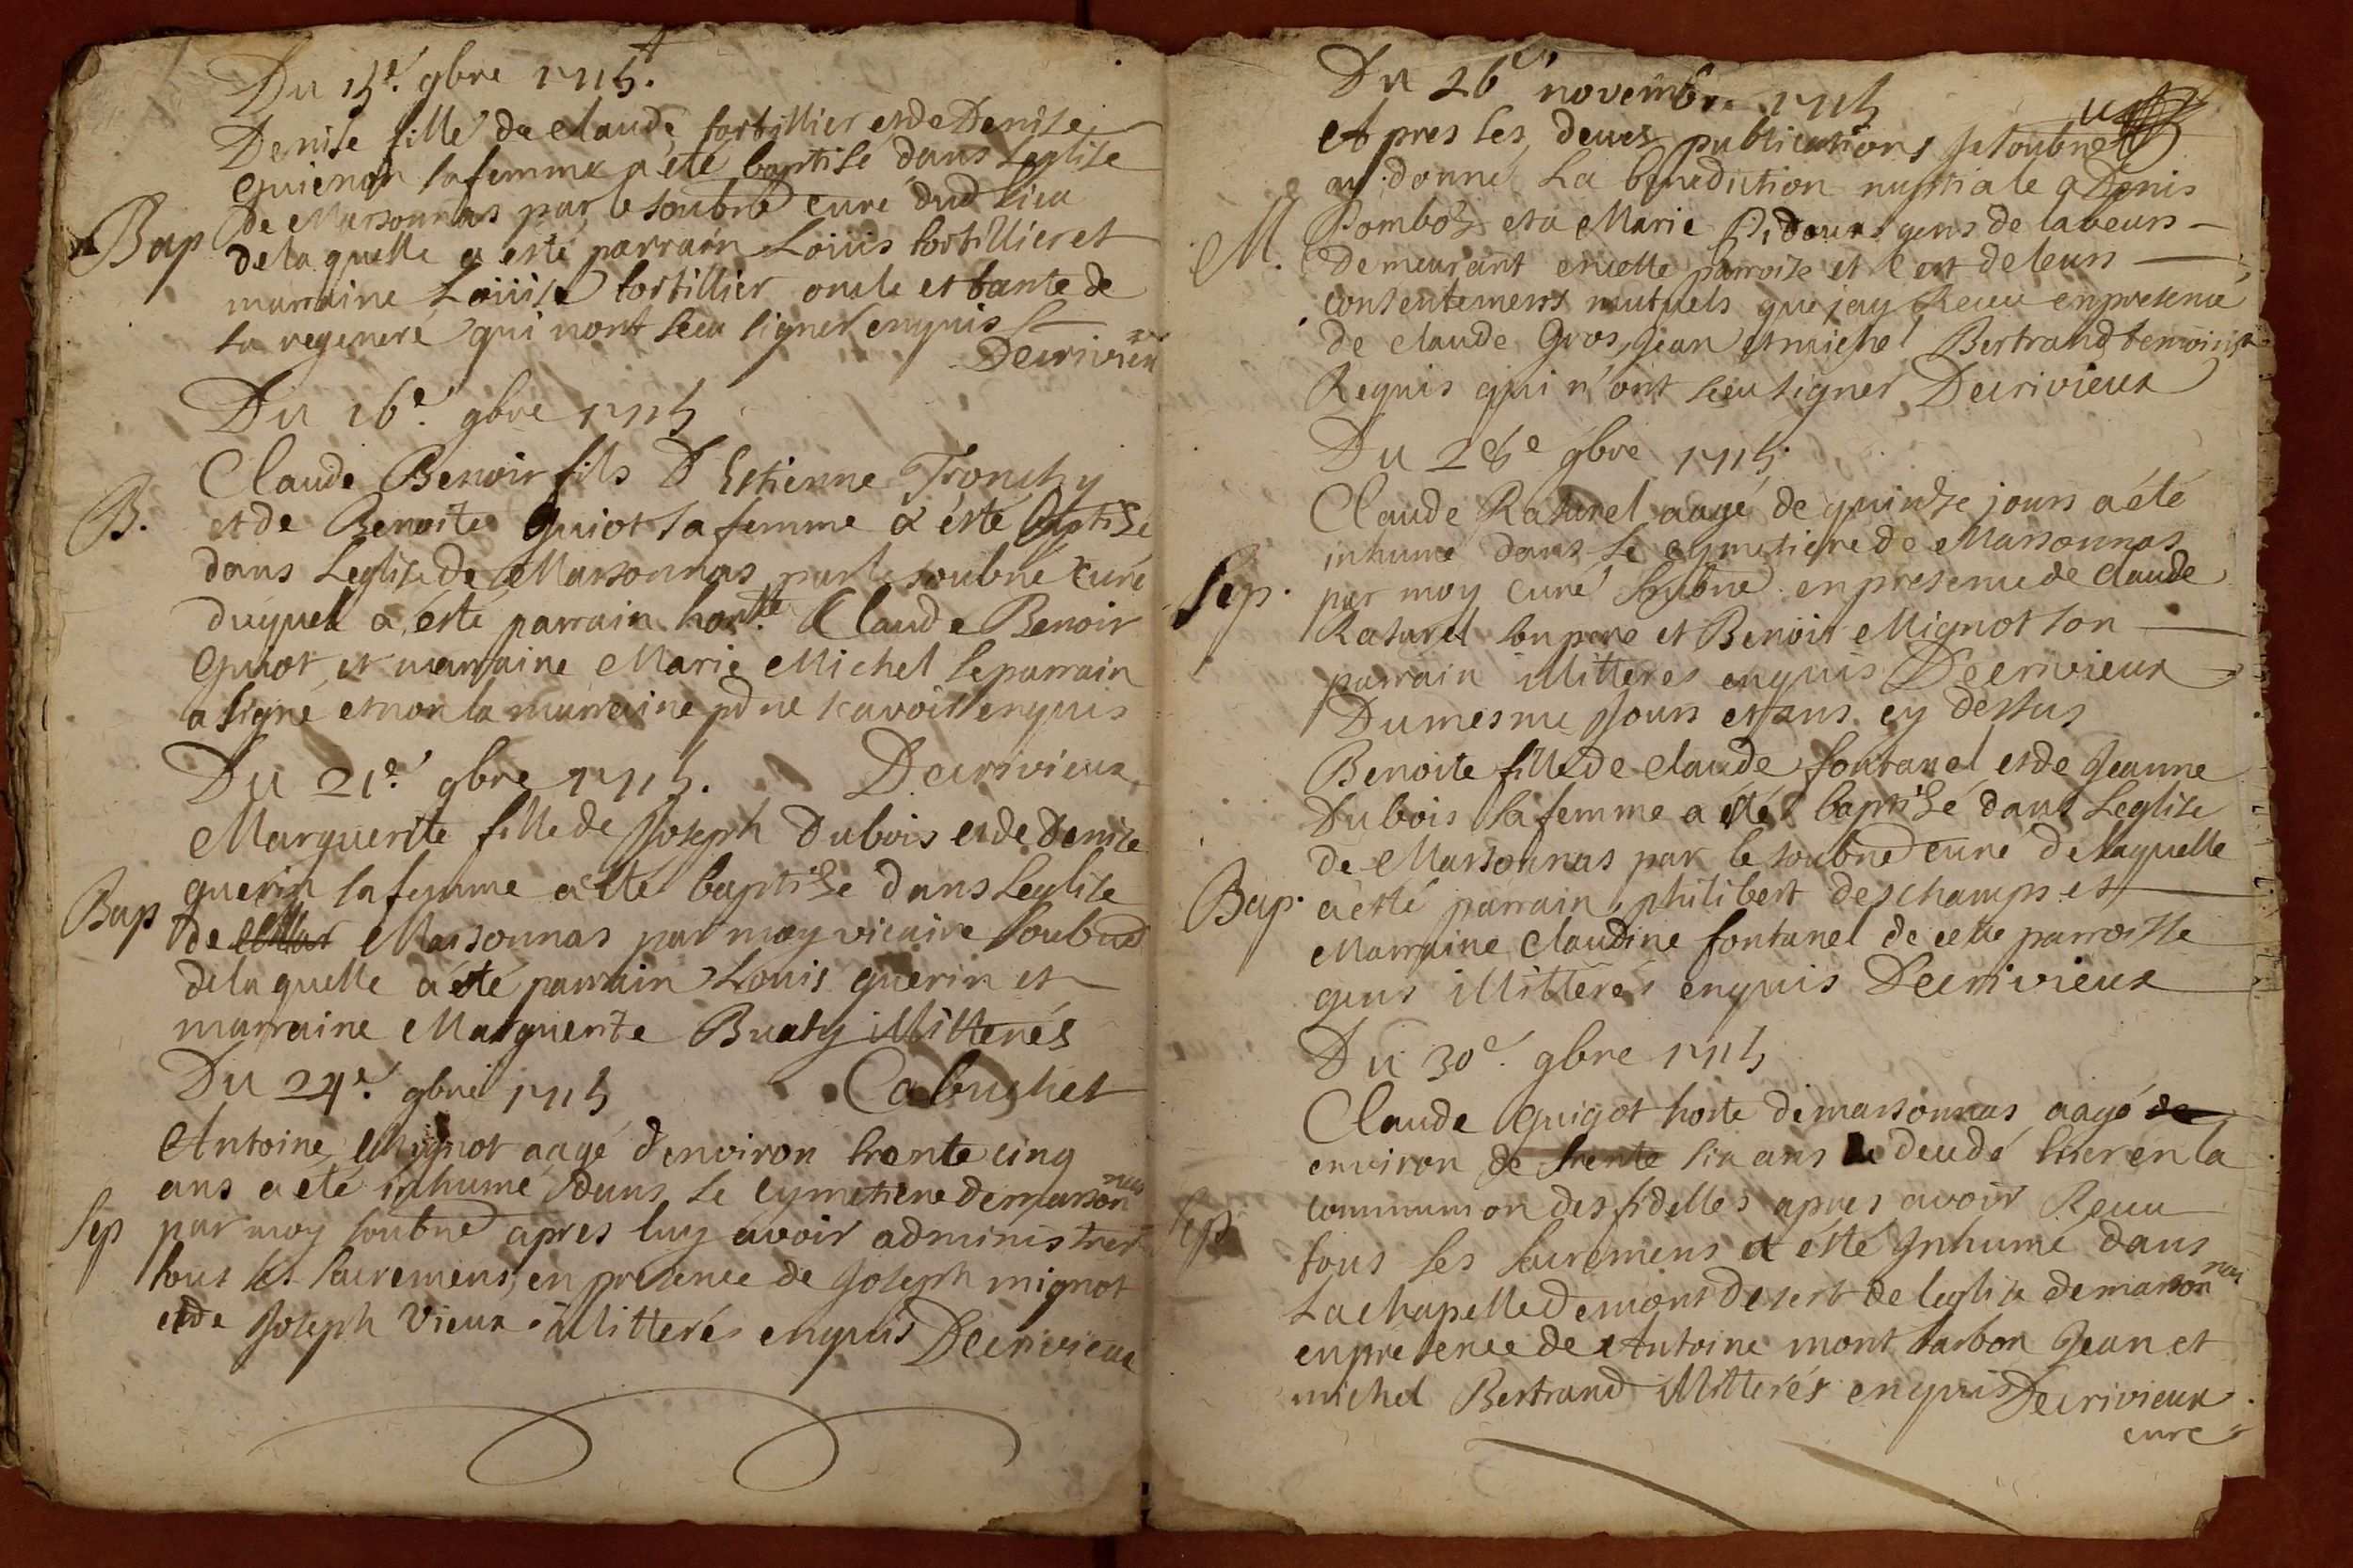 Du 15e. 9bre 1715.
Denise fille de Claude tortillier et de Denise
Guienon sa femme a été baptisé dans Leglise
Bap de Marsonnas par le soubné curé dud lieu
de laquelle a esté parrain Loüis tortillier et
marraine Loüise tortillier oncle et tante de
la regeneré qui nont sceu signer enquis
Decrivieux
Du 16e. 9bre 1715
Claude Benoir fils D'Estienne Tronchy
B. et de Benoite Guiot sa femme a esté baptisé
dans Leglise de Marsonnas par le soubné curé
duquel a esté parrain hon.te Claude Benoir
Guiot et marraine Marie Michel le parrain
a signé et non la marraine pd ne scavoir enquis
Du 21e. 9bre 1715. Decrivieux
Marguerite fille de Joseph Dubois et de Denise
guerin sa femme a été baptisée dans Leglise
Bap de Marsonnas par moy vicaire soubné
de laquelle a été parrain Louis guerin et
marraine Marguerite Buaty illitterés
Du 24e. 9bre 1715 Cabuchet
Antoine Mignot aagé denviron trente cinq
ans a été inhumé dans le cymetiere de marsonnas
Sep par moy soubné apres luy avoir administrer
tous les sacremens, en presence de Joseph mignot
et de Joseph Vieux illitterés enquis Decrivieux
Du 26e novembre 1715
Apres les deues publications je soubné
ay donné La benediction nuptiale a Denis
M. Pomboz et a Marie gens de labeurs
demeurant en cette parroise et c'est de leurs
consentemens mutuels que jay Receu en presence
de claude Gros, Jean et michel Bertrand temoins
Requis qui n'ont sceu signer Decrivieux
Du 28e 9bre 1715.
Claude Raturel aagé de quindze jours a été
inhumé dans le cymetiere de Marsonnas
Sep. par moy curé soubné en presence de Claude
Raturel son pere et Benoit Mignot son
parrain illitteres enquis Decrivieux
Du mesme Jours et ans cy dessus
Benoite fille de Claude fontanel et de Jeanne
Dubois sa femme a été baptisé dans Leglise
de Marsonnas par le soubné curé de laquelle
Bap. a esté parrain, philibert deschamps et
Marraine Claudine fontanel de cette parroisse
gens illitterés enquis Decrivieux
Du 30e. 9bre 1715
Claude Guigot hoste de marsonnas aagé de
environ de trente six ans decedé hier en la
communion des fidelles apres avoir Receu
Sep tous les sacremens a esté Inhumé dans
La chapelle de mont desert de leglise de marsonnas
en presence de Antoine mont barbon Jean et
michel Bertrand illitterés enquis Decrivieux
curé